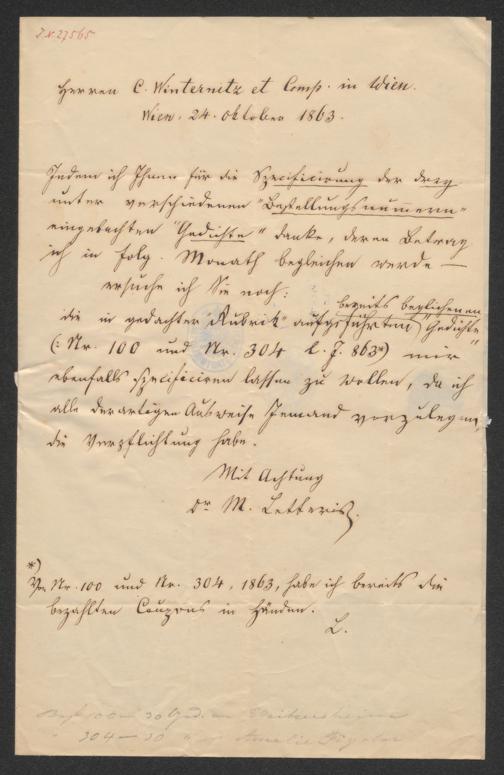 I.N. 27565
Herren C. Winternitz et Comp. in Wien.
Wien. 24. Oktober 1863.
Indem ich Ihnen für die Specificirung der drey
unter verschiedenen "Bestellungsnummern"
eingebachten "Gedichte" danke, deren Betrag
ich in folg. Monath begleichen werde —
ersuche ich Sie noch:
bereits beglichenen
die in gedachter "Rubrik" aufgeführten "Gedichte"
(: Nr. 100 und Nr. 304 l. J. 863*) mir
ebenfalls specificiren lassen zu wollen, da ich
alle derartigen Ausweise Jemand vorzulegen,
die Verpflichtung habe.
Mit Achtung
Dr M. Letteris.
*)
Von Nr. 100 und Nr. 304, 1863, habe ich bereits die
bezahlten Coupons in Händen.
L.
100 — 30 Ged. an
" 304 — 30 " " Amalie